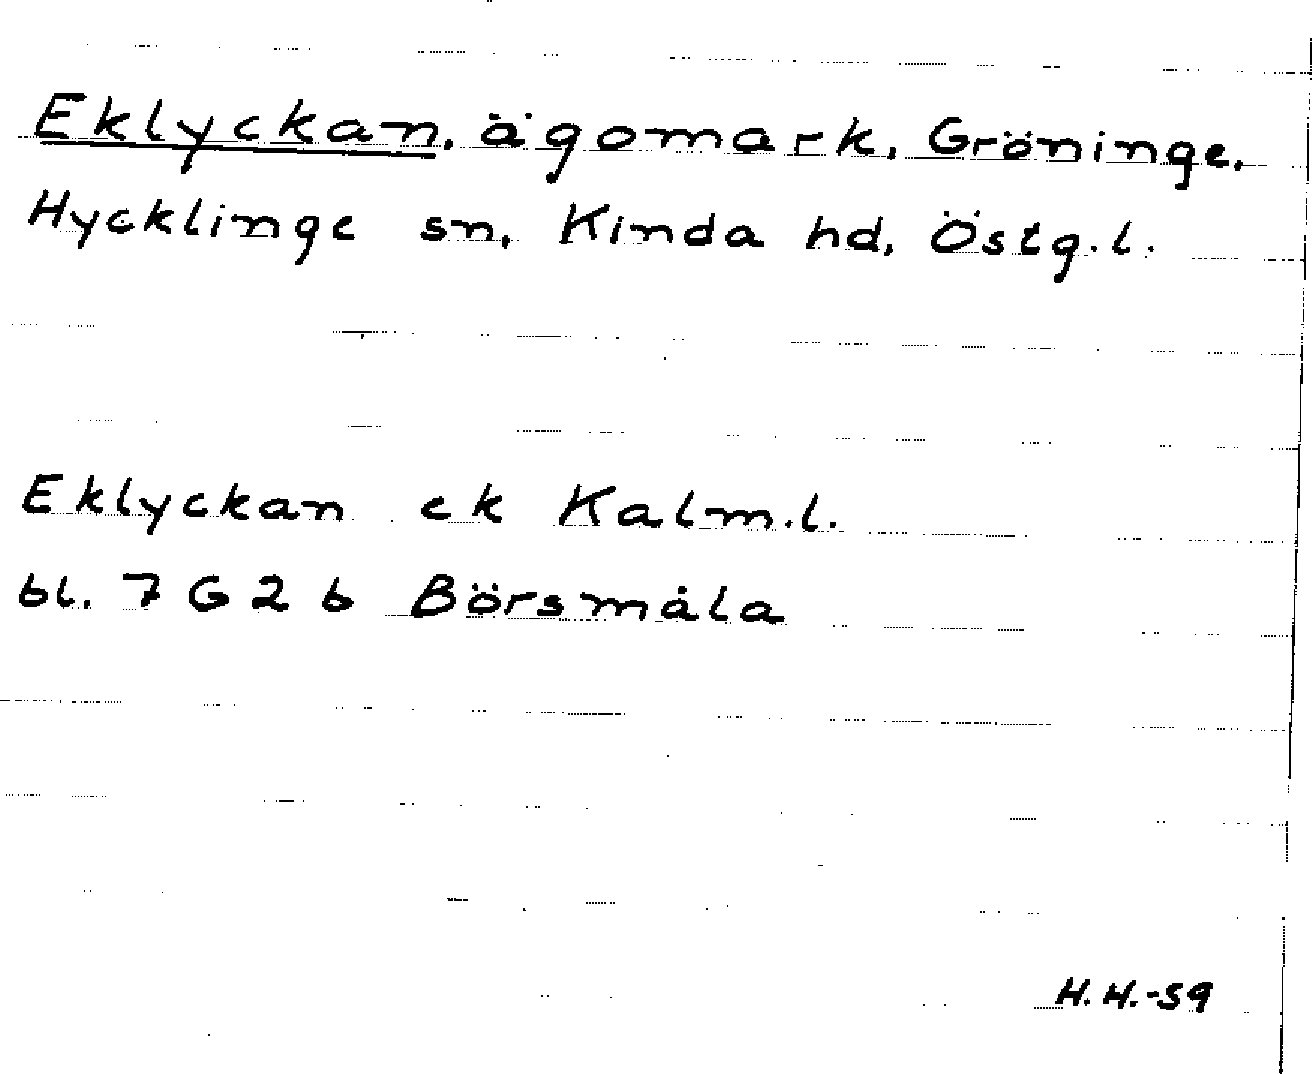 Eklyckan, ägomark, Gröninge,
Hycklinge sn, Kinda hd, Östg.l.
Eklyckan ek Kalm.l.
bl. 7 G 2 b Börsmåla
H.H.-59